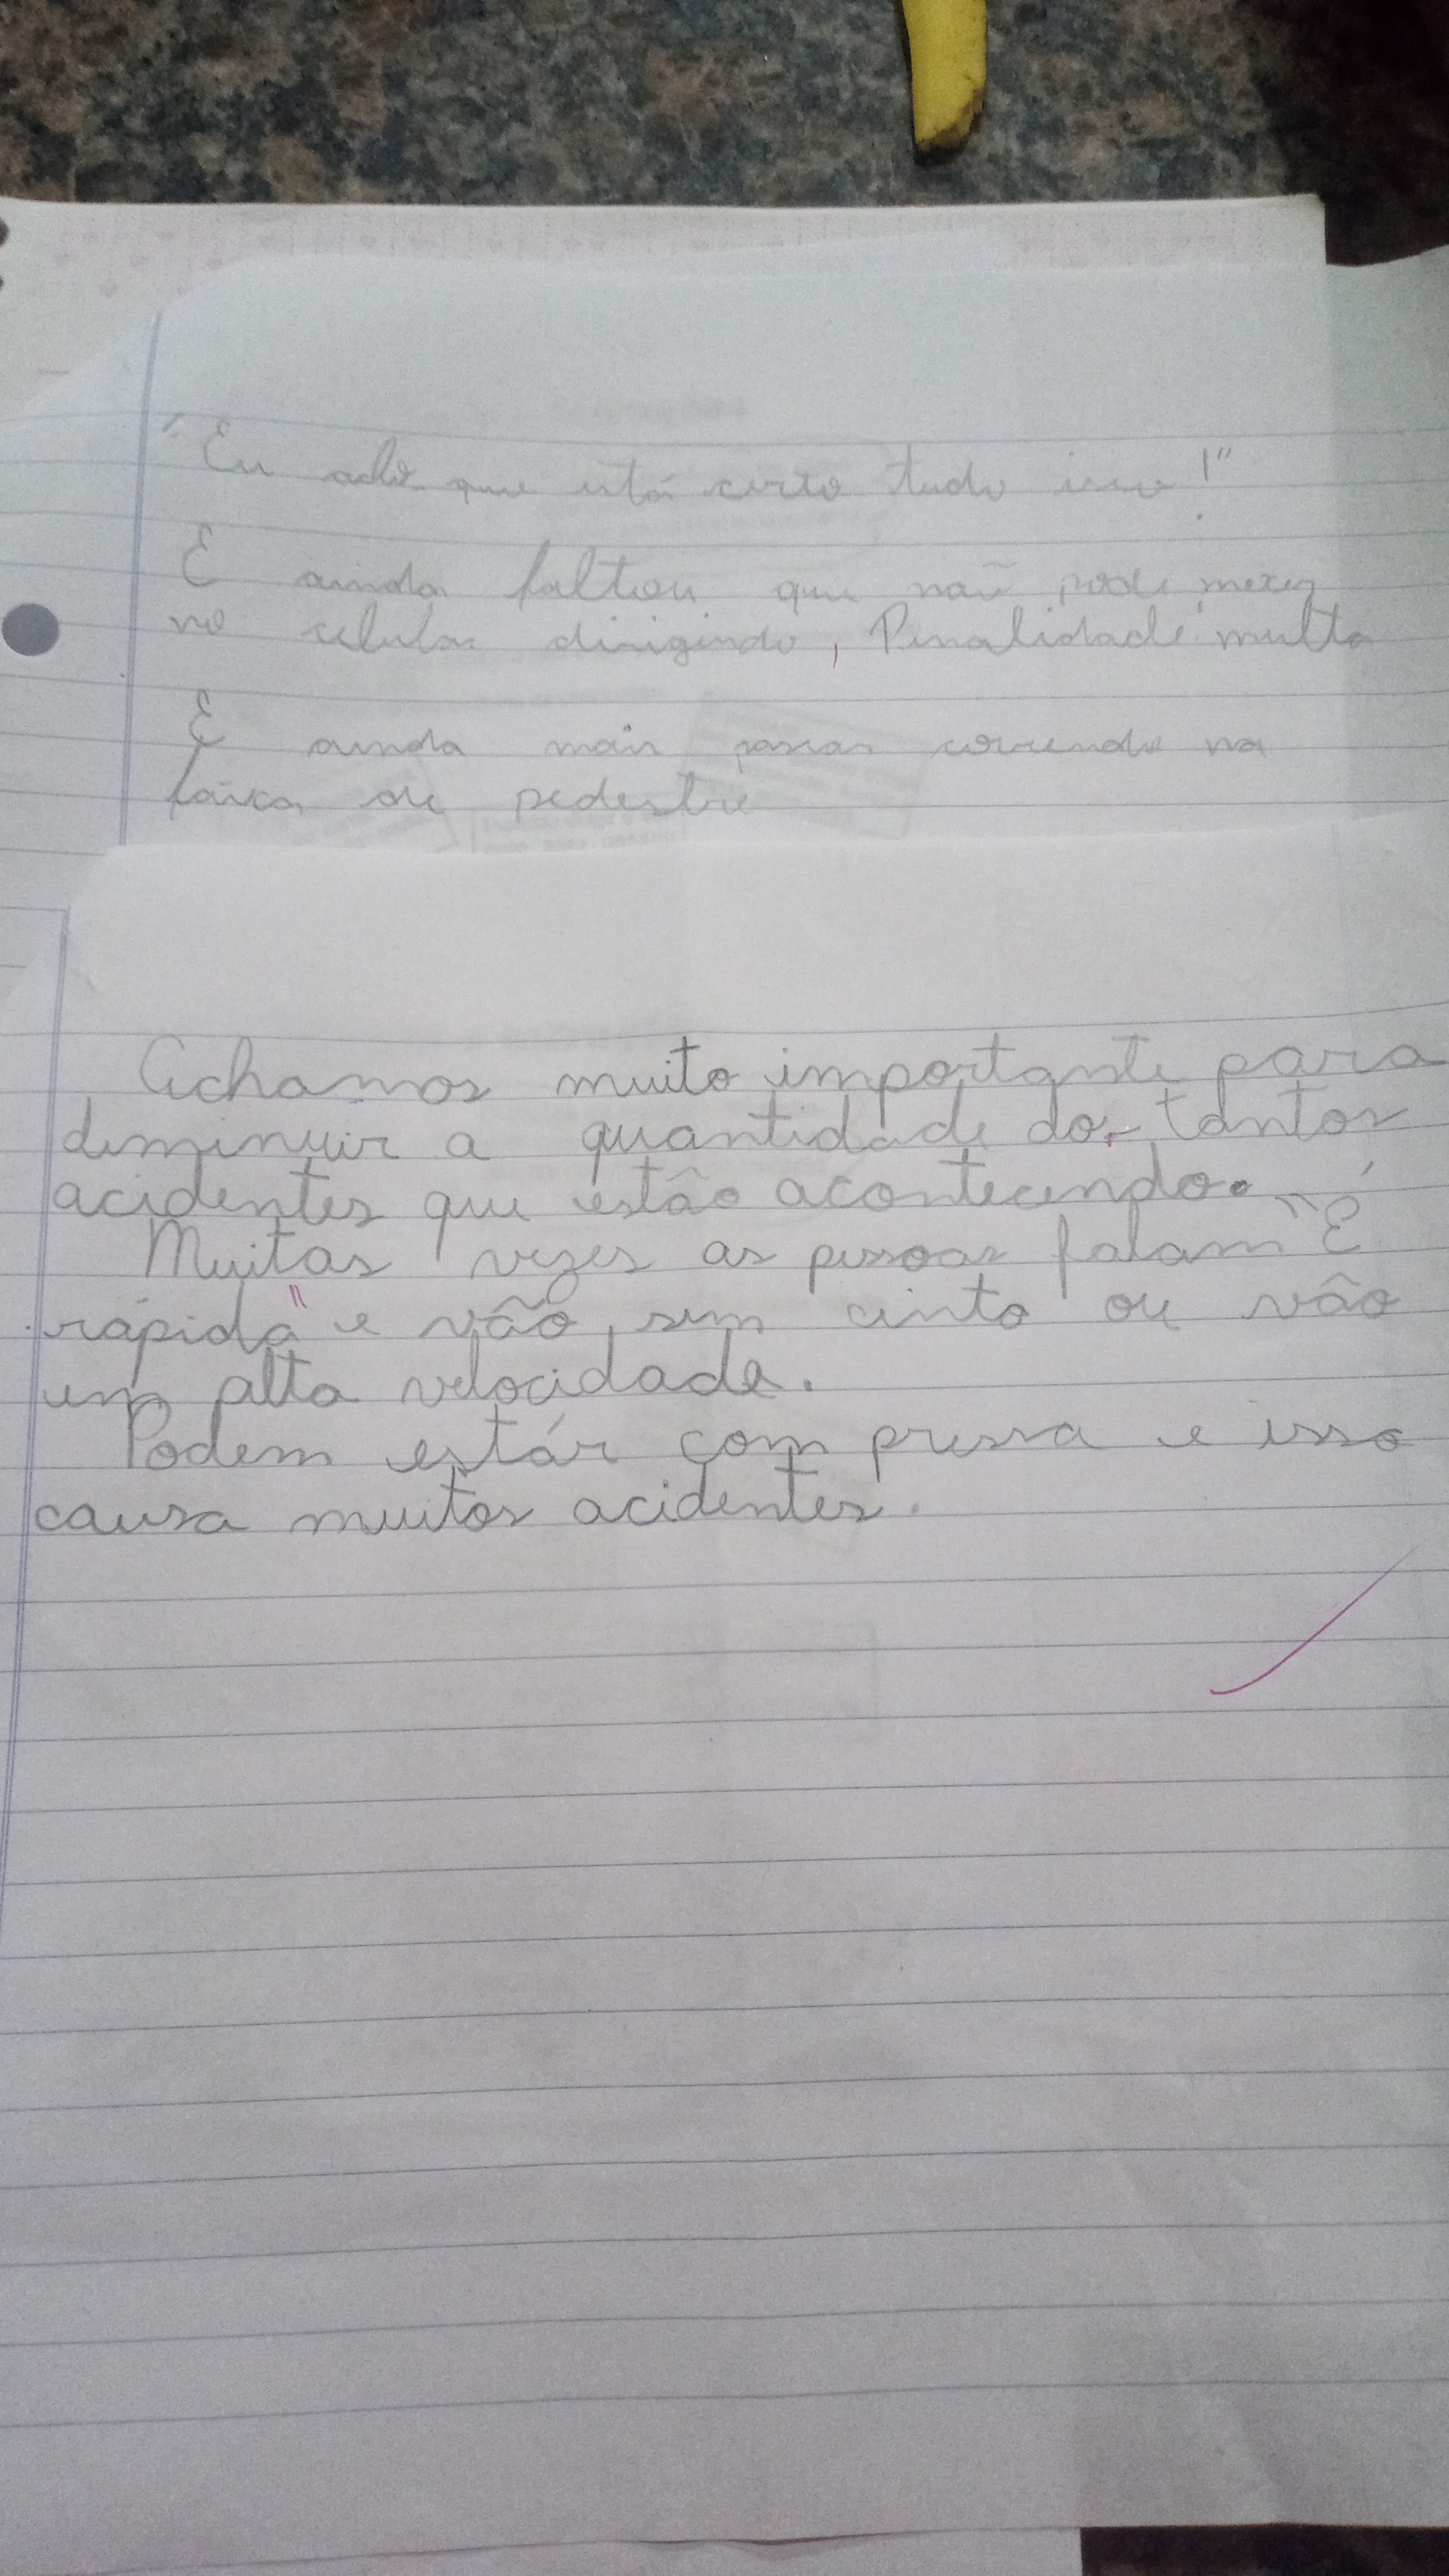 "Eu acho que está certo tudo isso!"
E ainda faltou que não pode mexer
no celular dirigindo, Penalidade: multa
E ainda mais passar correndo na
faixa de pedestre
Achamos muito importante para
diminuir a quantidade de tantos
acidentes que estão acontecendo.
Muitas vezes as pessoas falam "É
rápido" e vão sem cinto ou vão
em alta velocidade.
Podem estár com pressa e isso
causa muitos acidentes.